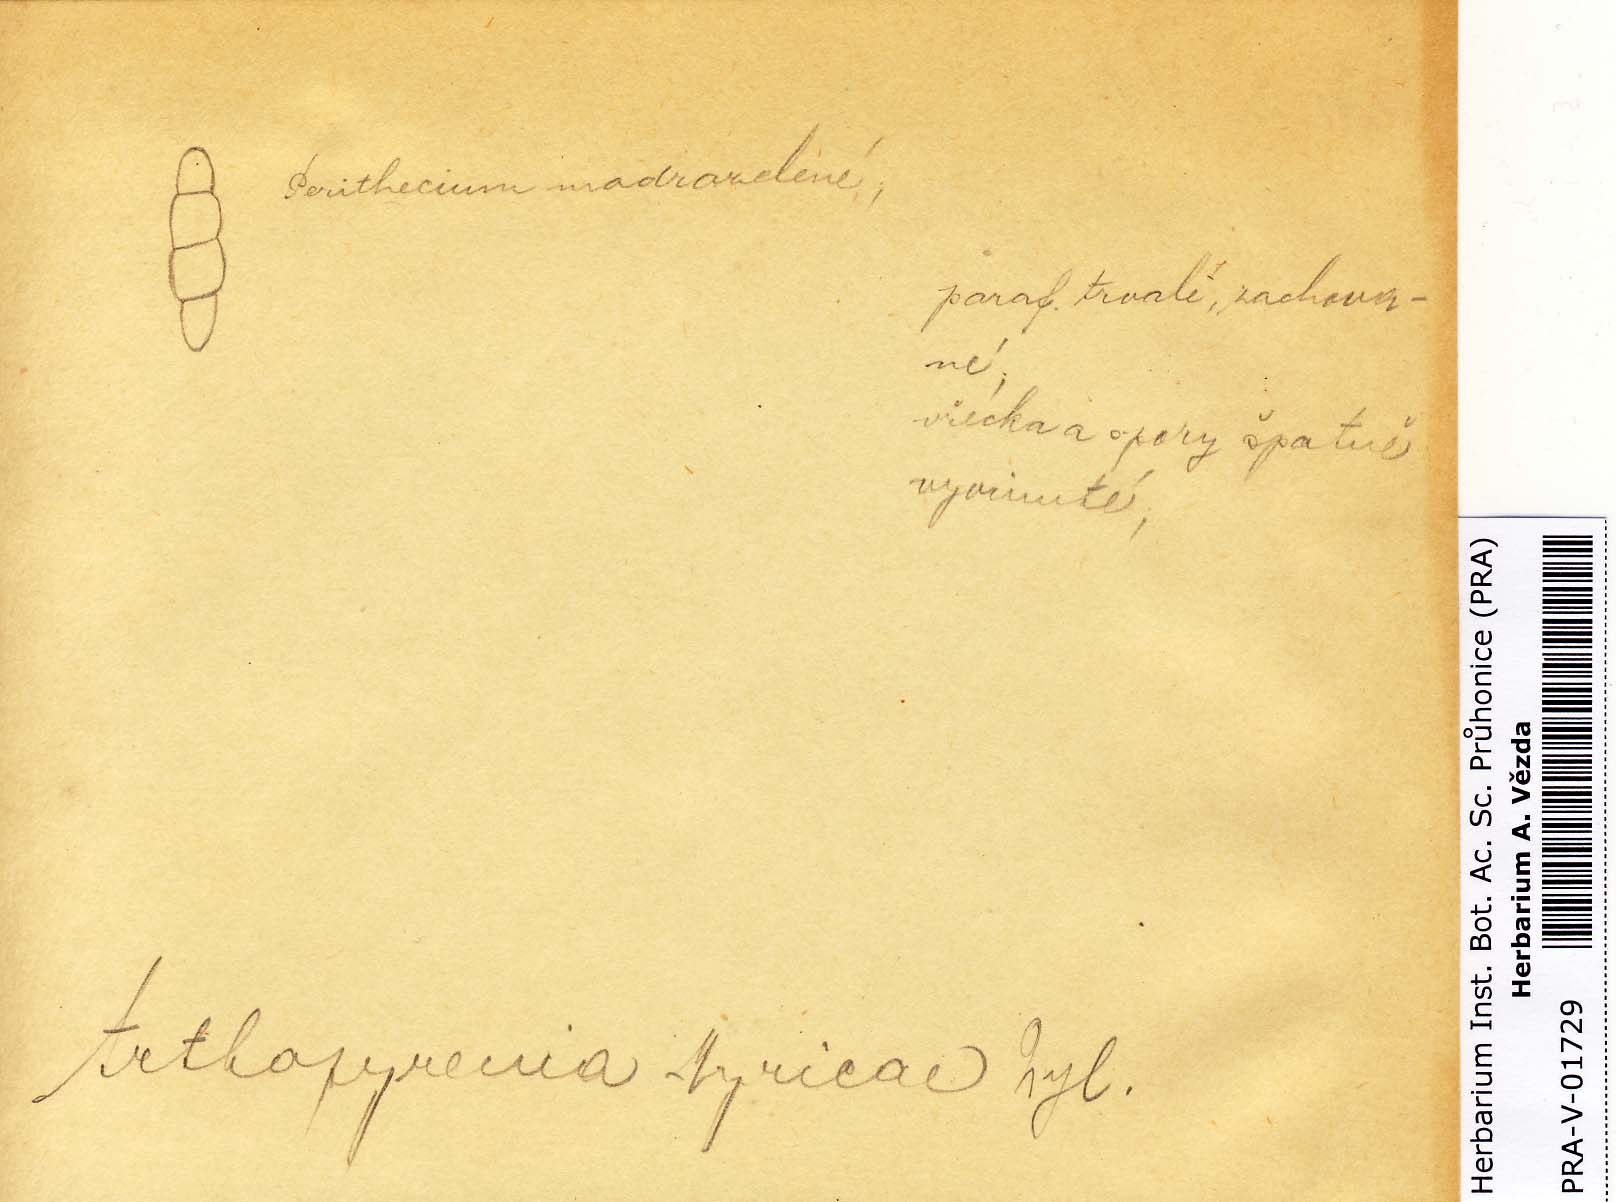 Perithecium modrozelené,
paraf. trvalé, zachova-
né,
vřécka a spory špatně
vyvinuté,
Arthopyrenia Myricae Nyl.
Herbarium Inst. Bot. Ac. Sc. Průhonice (PRA)
Herbarium A. Vězda
PRA-V-01729